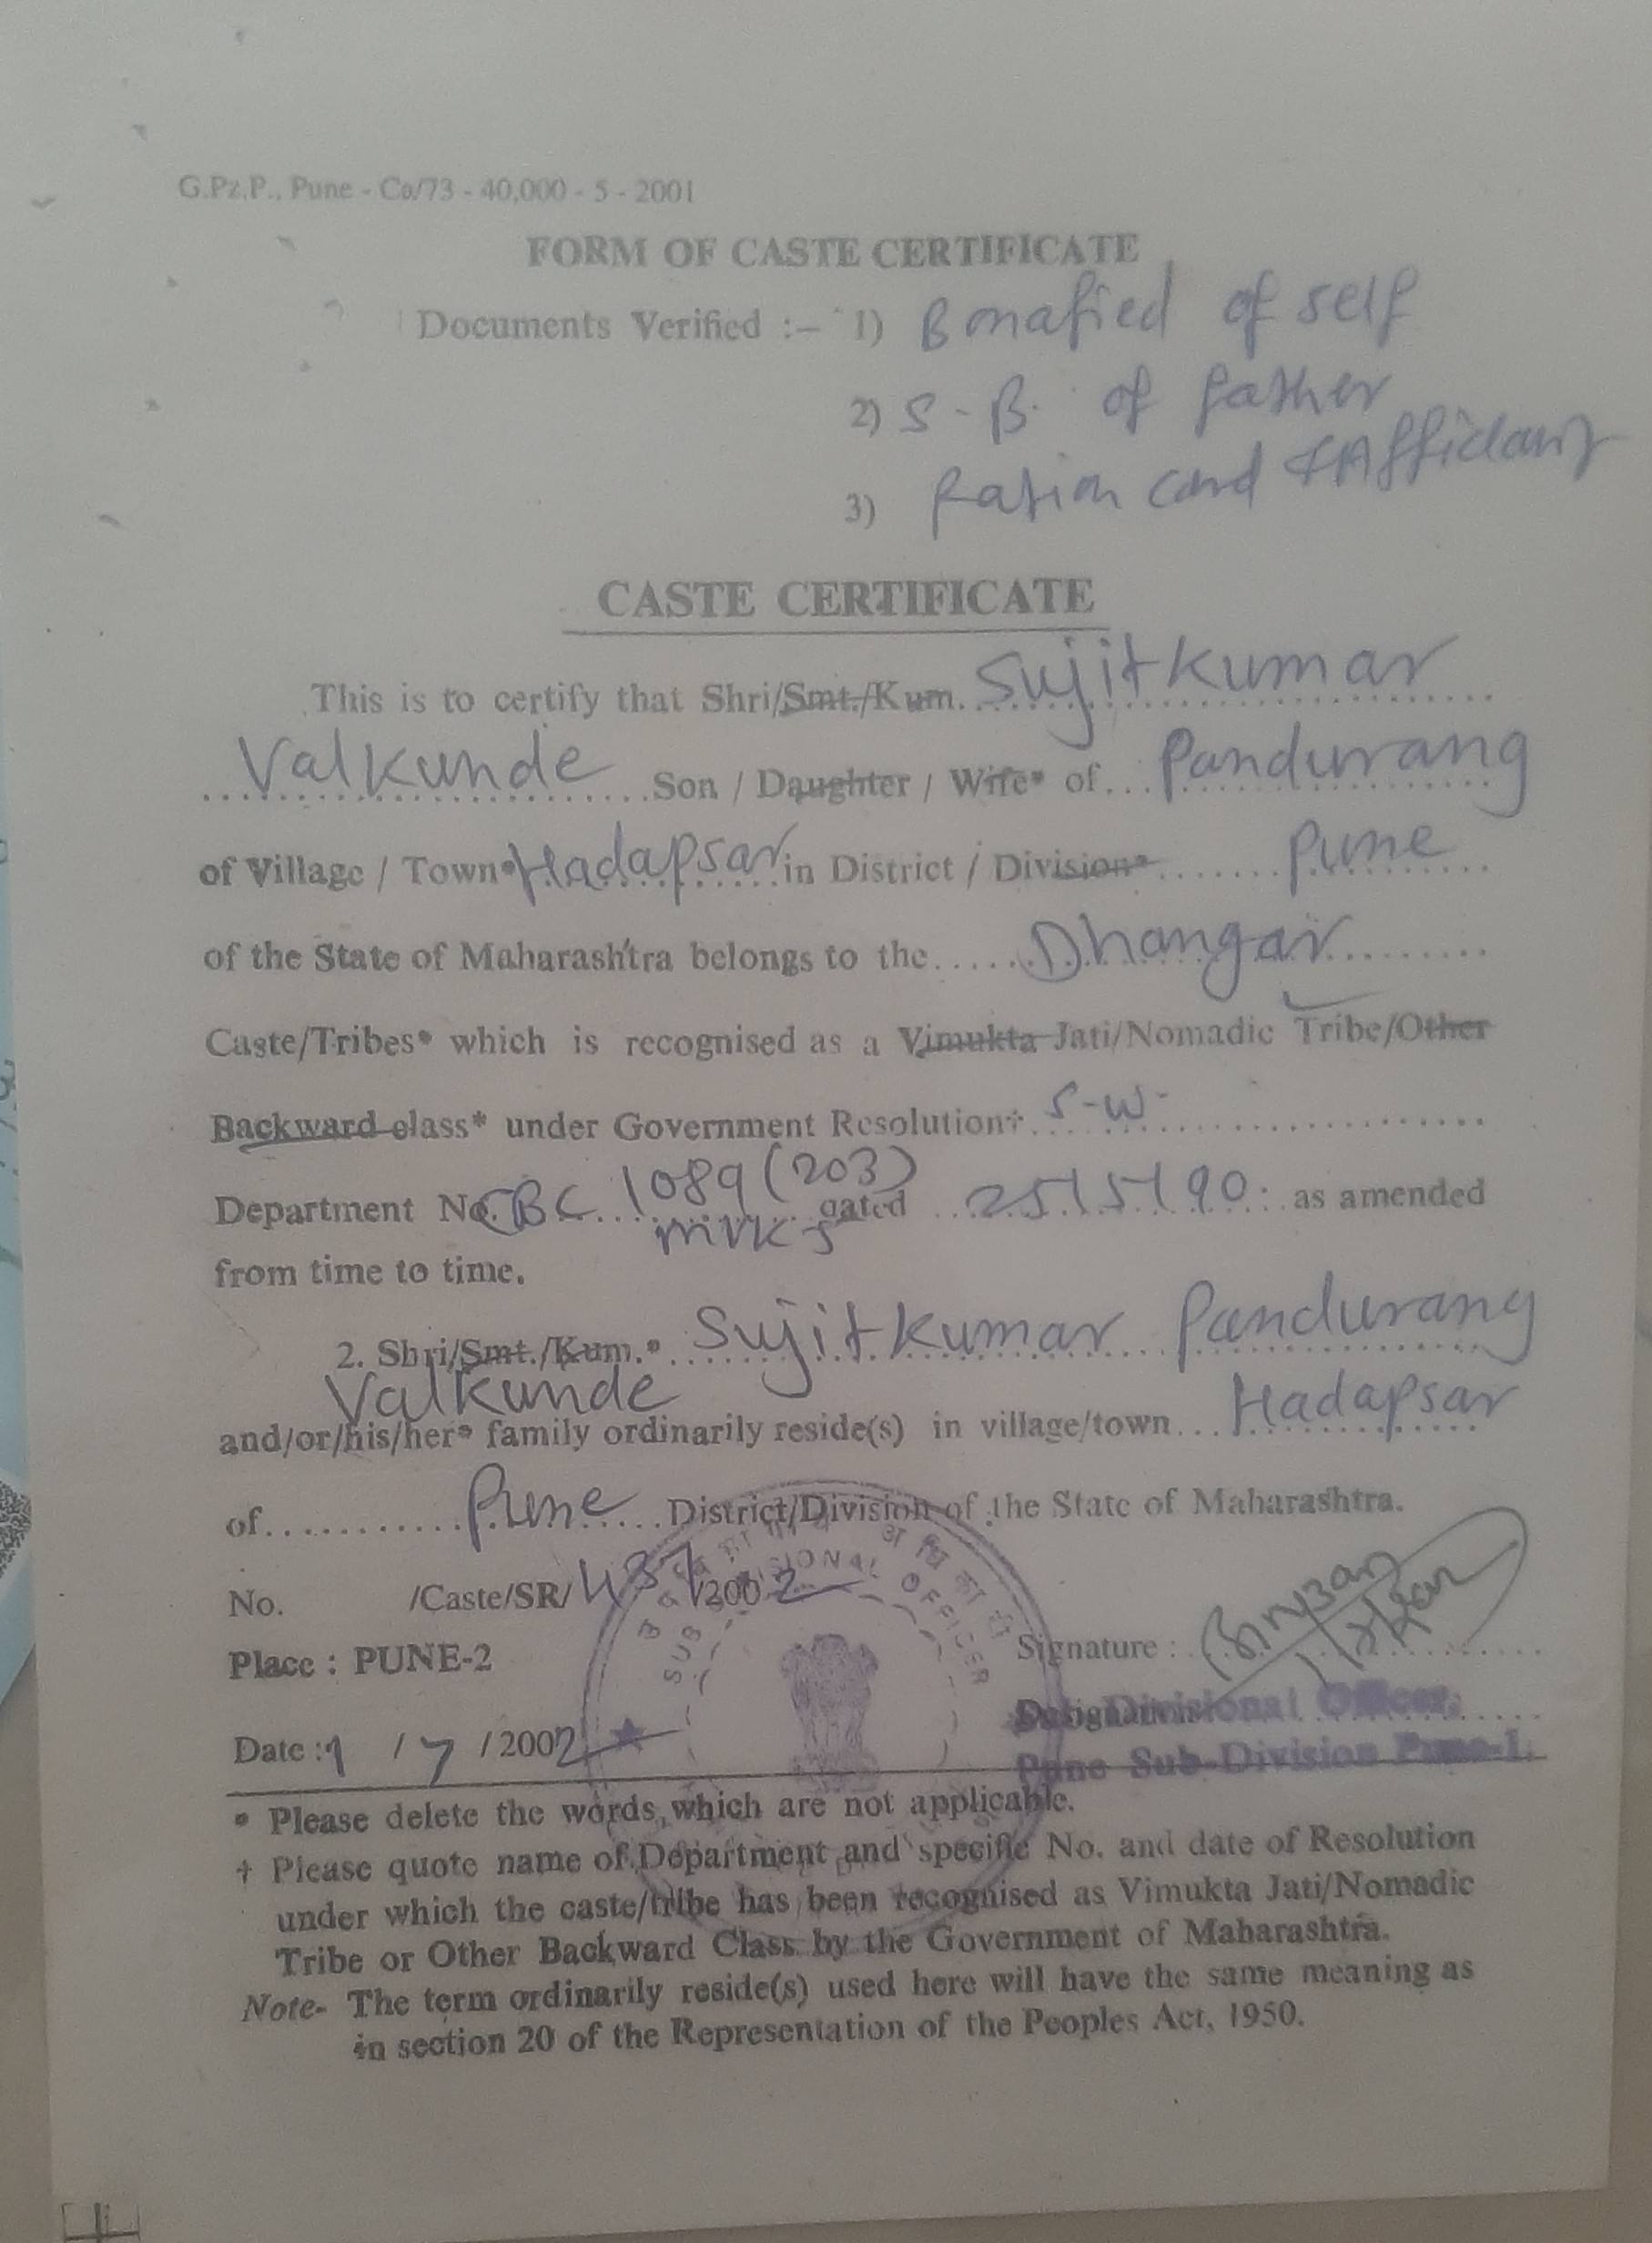 G.Pz.P., Pune - Co/73 - 40,000 - 5 - 2001
FORM OF CASTE CERTIFICATE
Documents Verified :- 1) Bonafied of self
2) S-B. of father
3) Ration card & Affidavit
CASTE CERTIFICATE
This is to certify that Shri/Smt./Kum. Sujitkumar
Valkunde Son / Daughter / Wife* of... Pandurang
of Village / Town* Hadapsar in District / Division* Pune
of the State of Maharashtra belongs to the..... Dhangar
Caste/Tribes* which is recognised as a Vimukta Jati/Nomadic Tribe/Other
Backward class* under Government Resolution† S-W-
Department No. CBC 1089 (203) dated 25/5/90 : as amended
from time to time.
2. Shri/Smt./Kum.* Sujitkumar Pandurang
Valkunde
and/or/his/her* family ordinarily reside(s) in village/town... Hadapsar
of............ Pune District/Division of the State of Maharashtra.
No. /Caste/SR/ 437/2002
SUB DIVISIONAL OFFICER
Place : PUNE-2
Signature :
Divisional Officer,
Date : 1 / 7 / 2002
Pune Sub-Division Pune-1.
* Please delete the words, which are not applicable.
† Please quote name of Department and specific No. and date of Resolution
under which the caste/tribe has been recognised as Vimukta Jati/Nomadic
Tribe or Other Backward Class by the Government of Maharashtra.
Note- The term ordinarily reside(s) used here will have the same meaning as
in section 20 of the Representation of the Peoples Act, 1950.